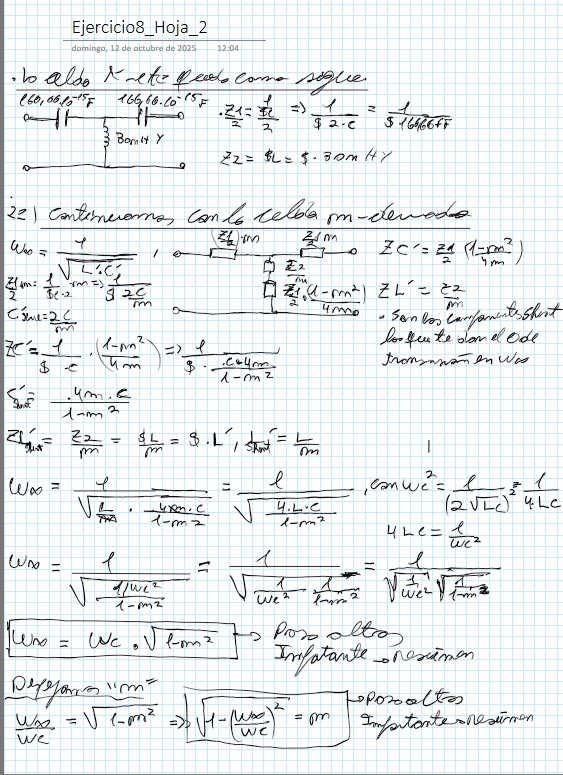 Ejercicio8_Hoja_2
domingo, 12 de octubre de 2025 12:04
. la celda K-cte queda como sigue
166,66.10^-15 F 166,66.10^-15 F
30mHy
. Z1/2 = (1/$C)/2 => 1/($ 2·C) = 1/($ 166,66fF)
Z2 = $L = $ · 30mHy
22) Continuamos con la celda m-derivada
W∞ = 1/√(L'·C')
(Z1/2)·m Z1/2 m
ZC' = Z1/2 (1-m²/4m)
Z1/2 m = 1/($C·2) · m => 1/($ 2C/m)
Z2/m
Z1·(1-m²)/4m
ZL' = Z2/m
C'serie = 2C/m
· Son los componentes Shunt
los que te dan el 0 de
transmisión en W∞
ZC' = 1/($·C) · (1-m²/4m) => 1/($ · C·4m/(1-m²))
C'shunt = 4m·C/(1-m²)
ZL'shunt = Z2/m = $L/m = $·L', L'shunt = L/m
W∞ = 1/√(L/m · 4m·C/(1-m²)) = 1/√(4·L·C/(1-m²)), con Wc² = 1/(2√LC)² = 1/4LC
4LC = 1/Wc²
W∞ = 1/√((1/Wc²)/(1-m²)) = 1/√(1/Wc² · 1/(1-m²)) = 1/(√(1/Wc²) √(1/(1-m²)))
W∞ = Wc · √(1-m²) → Paso altos
Impotante → resúmen
Despejamos "m"
W∞/Wc = √(1-m²) => √(1-(W∞/Wc)²) = m → paso altos
Impotante → resúmen